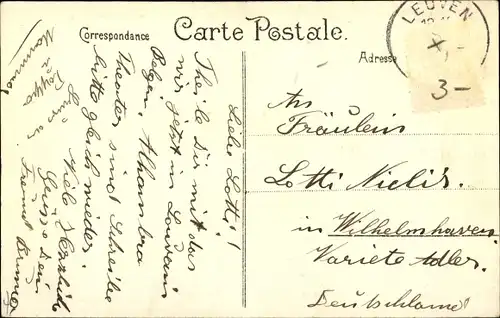 Correspondance
Carte Postale.
Adresse
LEUVEN
X,-
3-
An
Fräulein
Lotti Nielis.
in Wilhelmshaven
Variete Adler.
Deutschland
Liebe Lotti!
Theile Dir mit das
wir jetzt in Louvain
Belgien, Alhambra
Theater sind Schreibe
bitte gleich wieder.
Viele Herzliche
Grüsse Dein
Freund